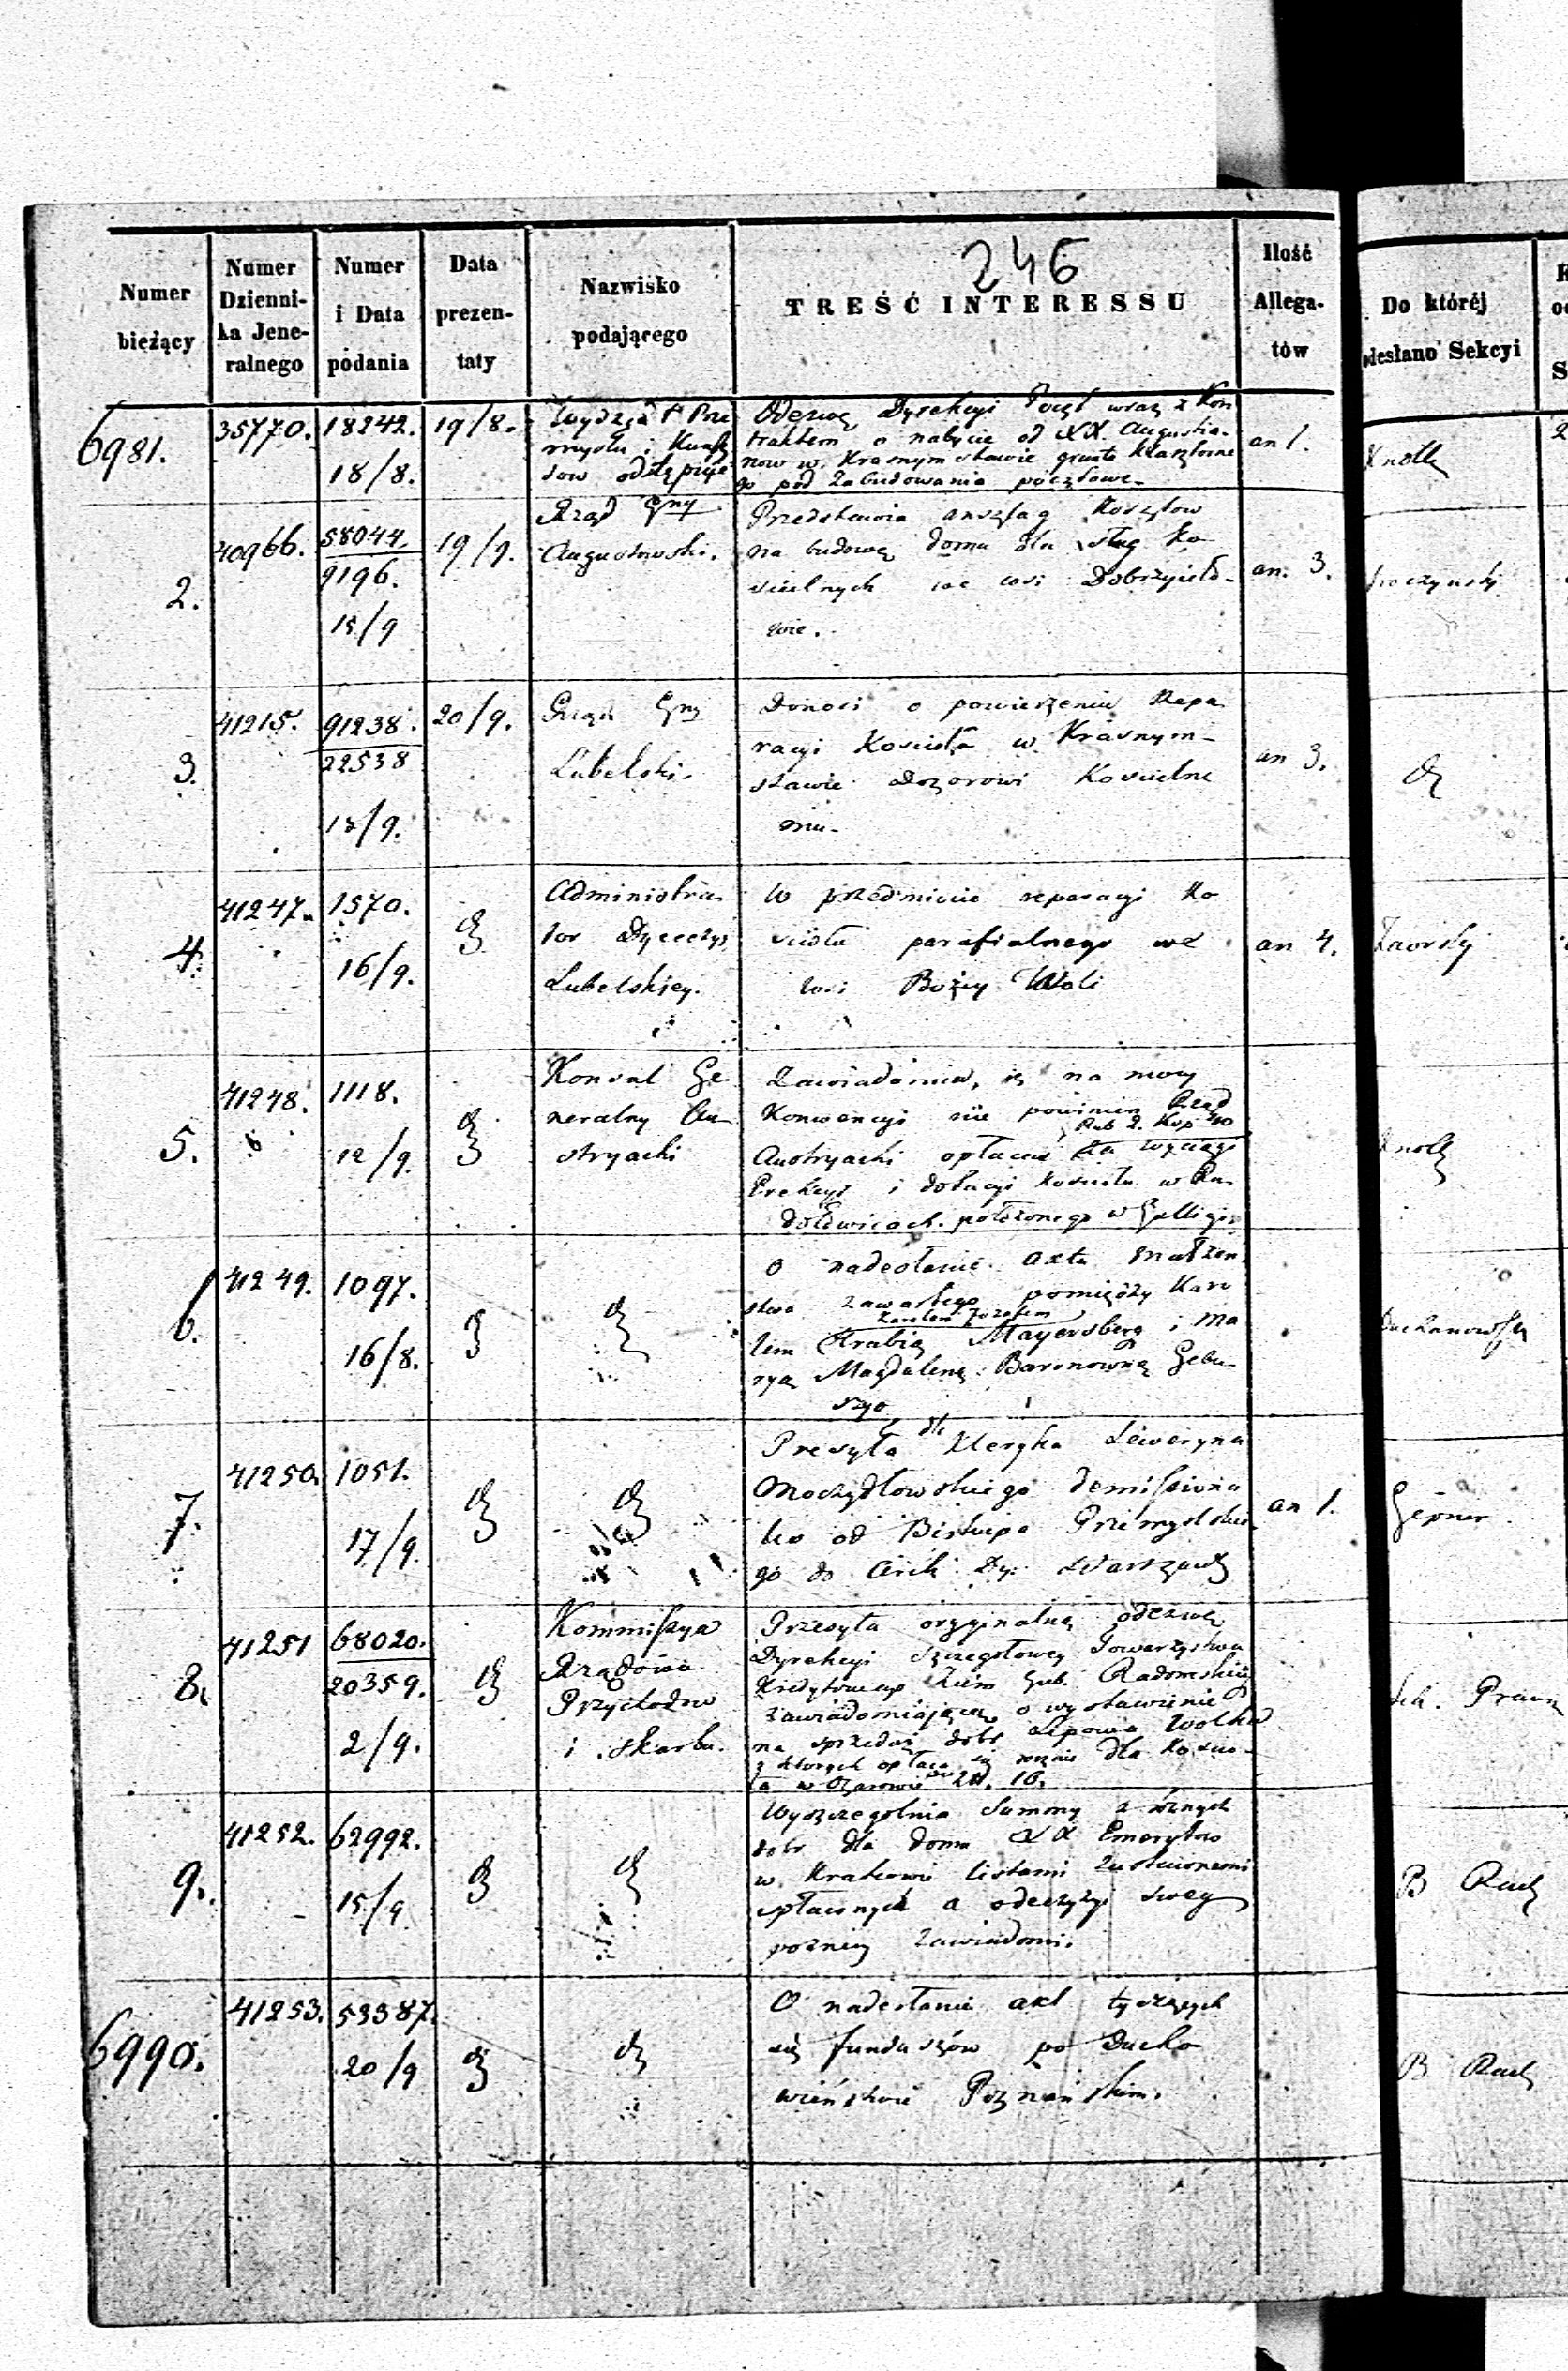 246
Numer bieżący
Numer Dzienni- ka Jene- ralnego
Numer i Data podania
Data prezen- taty
Nazwisko podającego
TREŚĆ INTERESSU
Ilość Allega- tów
Do któréj Sekcyi
6981.
35770.
18242.
18/8.
19/8.
Wydział Prze
mysłu i Kunsz
tow odstępuje
Odezwę Dyrekcyi Poczt wraz z Kon
traktem o nabycie od XX. Augustia-
now w Krasnymstawie gruntu klasztorne
go pod zabudowania pocztowe.
an 1.
Knoll
2.
40966.
58044.
9196.
15/9
19/9.
Rząd Gny
Augustowski.
Przedstawia anszlag kosztow
na budowę domu dla sług ko
scielnych we wsi
wie.
an. 3.
3.
41215.
91238.
22538
20/9.
Rząd Gny
Lubelski.
Donosi o powierzeniu Repa
racyi Kościoła w Krasnym-
stawie Dozorowi Kościelne
mu.
an 3.
4.
41247.
1570.
16/9.
Administra
tor Dyecezyi
Lubelskiey.
W przedmiocie reparacyi Ko
ścioła parafialnego we
wsi Bożey Woli
an 4.
5.
41248.
1118.
12/9.
Konsul Ge
neralny Au
stryacki
Zawiadamia, iż na mocy
Konwencyi nie powinien Rząd
Rub 2. Kop 40
Austryacki opłacać za wyciągi
Erekcyi i dotacyi kościoła w
położonego w Gallicyi
Knoll
6.
41249.
1097.
16/8.
O nadesłanie aktu małżen
stwa zawartego pomiędzy Karo
Karolem Jozefem
lem Hrabią Mayersberg i Ma
ryą Magdaleną Baronowną
7.
41250.
1051.
17/9.
Presyła dla Kleryka Seweryna
Moczydłowskiego demissoria
od Biskupa Przemyskie
go do Arch. Dy. Warszaws
an 1.
Gepner
8.
41251
68020.
20359.
2/9.
Kommissya
Rządowa
Przychodow
i Skarbu.
Przesyła oryginalną odezwę
Dyrekcyi Szczegołowey Towarzystwa
Kredytowego Ziem Gub. Radomskiey
zawiadomiającą o wystawienie
na sprzedaż dobr Lipowa Wolka
z ktorych opłaca się rocznie dla Koscio-
ła w Ożarowie
9.
41252.
62992.
15/9
Wyszczegolnia Summy z roznych
dobr dla domu XX Emerytow
w Krakowie listami zastawnemi
spłaconych a o decyzyi swey
pozniey zawiadomi.
B Rach
6990.
41253.
53387.
20/9
O nadesłanie akt tyczących
się funduszów po Ducho
wieństwie Poznańskim.
B Rach